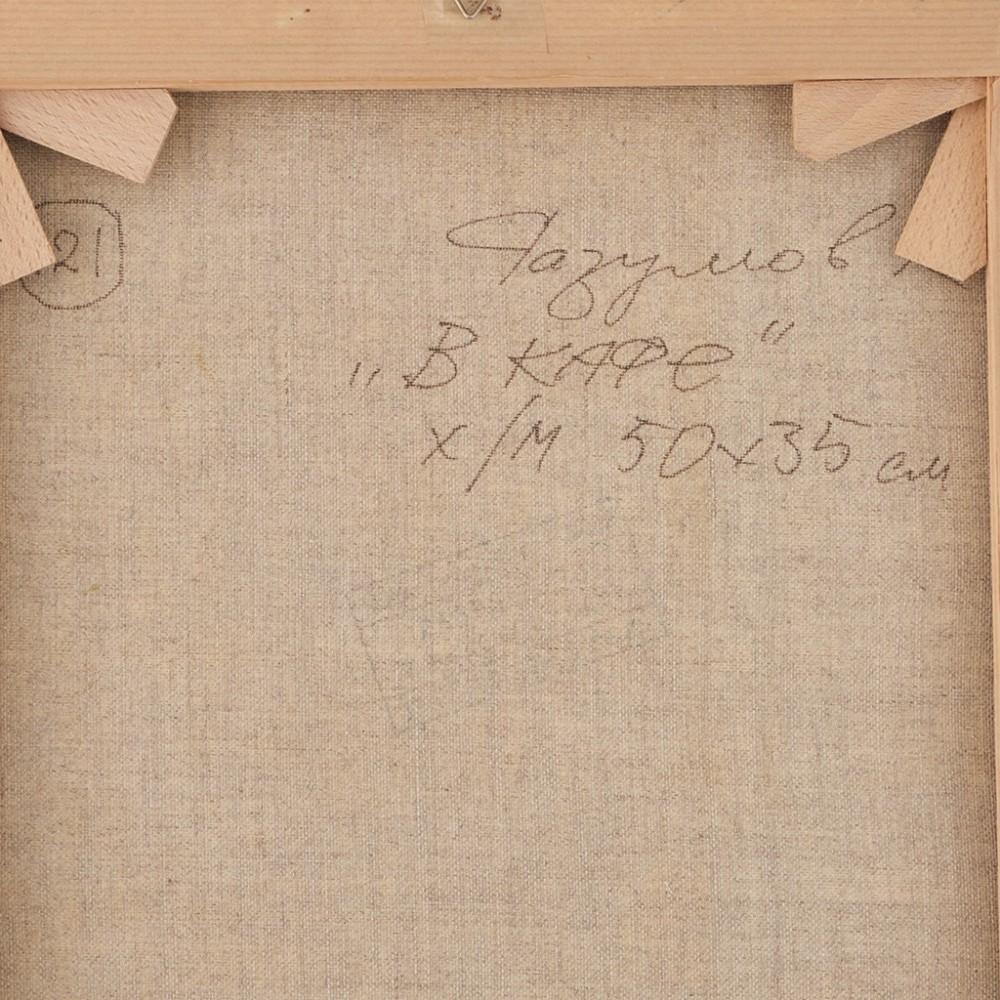 21
Разумов
„В КАФЕ"
х/м 50х35 см